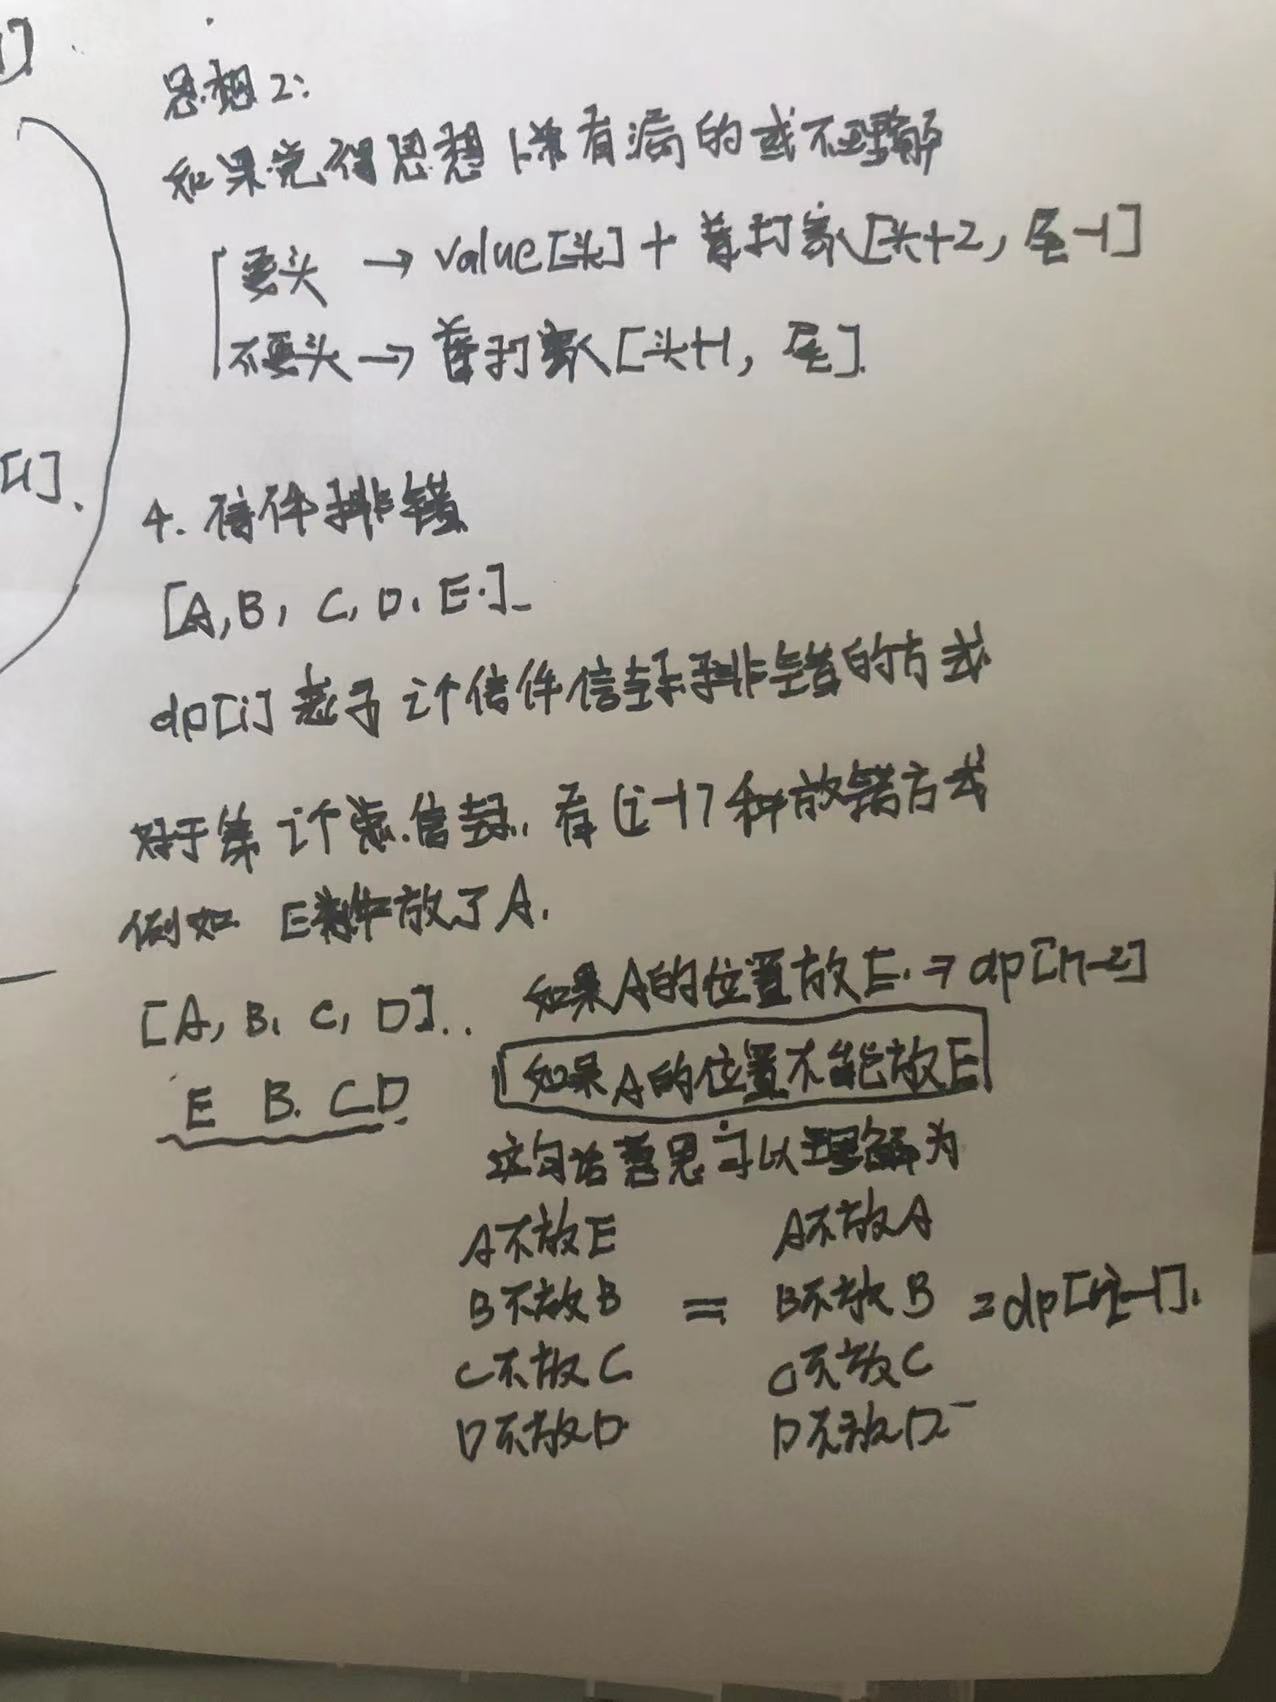 思想2:
如果觉得思想1常有漏的或不理解
要头 → value[头] + 普打家[头+2, 尾-1]
不要头 → 普打家[头+1, 尾].
[1].
4. 信件排错
[A, B, C, D, E.]
dp[i] 表示 i个信件信封排错的方式
对于第 i个 信封, 有 (i-1) 种放错方式
例如 E 放了A.
[A, B, C, D]..
如果A的位置放E. ⇒ dp[n-2]
E B. C D
如果A的位置不能放E
这句话意思可以理解为
A不放E A不放A
B不放B = B不放B = dp[i-1].
C不放C C不放C
D不放D. D不放D